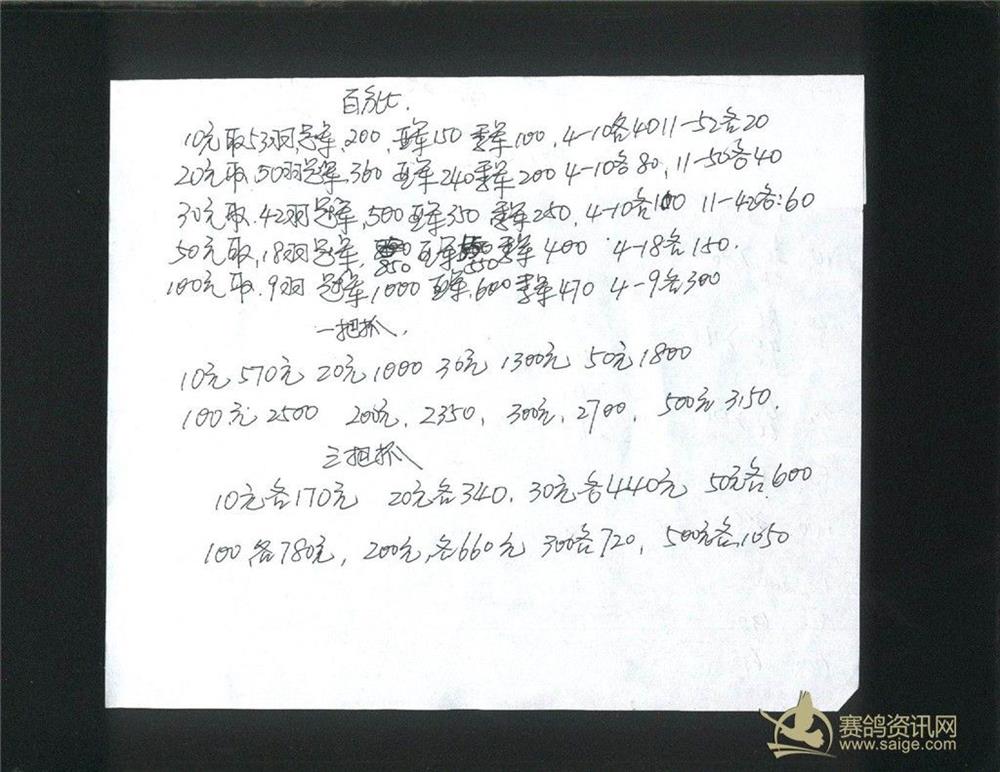 百分比.
10元取53羽冠军,200,亚军150 季军100,4-10各40 11-52各20
20元取,50羽冠军,360 亚军240季军200 4-10各80,11-50各40
30元取.42羽冠军,500亚军350 季军250,4-10各100 11-42各:60
50元取,18羽冠军,850亚军550季军400 4-18各150.
100元取.9羽 冠军,1000亚军,600季军470 4-9各300
一把抓.
10元570元 20元1000 30元 1300元 50元1800
100元2500 200元,2350, 300元,2700, 500元3150.
三把抓
10元各170元 20元各340.30元各440元 50元各600
100,各780元,200元,各660元 300各720,500元各,1050
赛鸽资讯网
www.saige.com